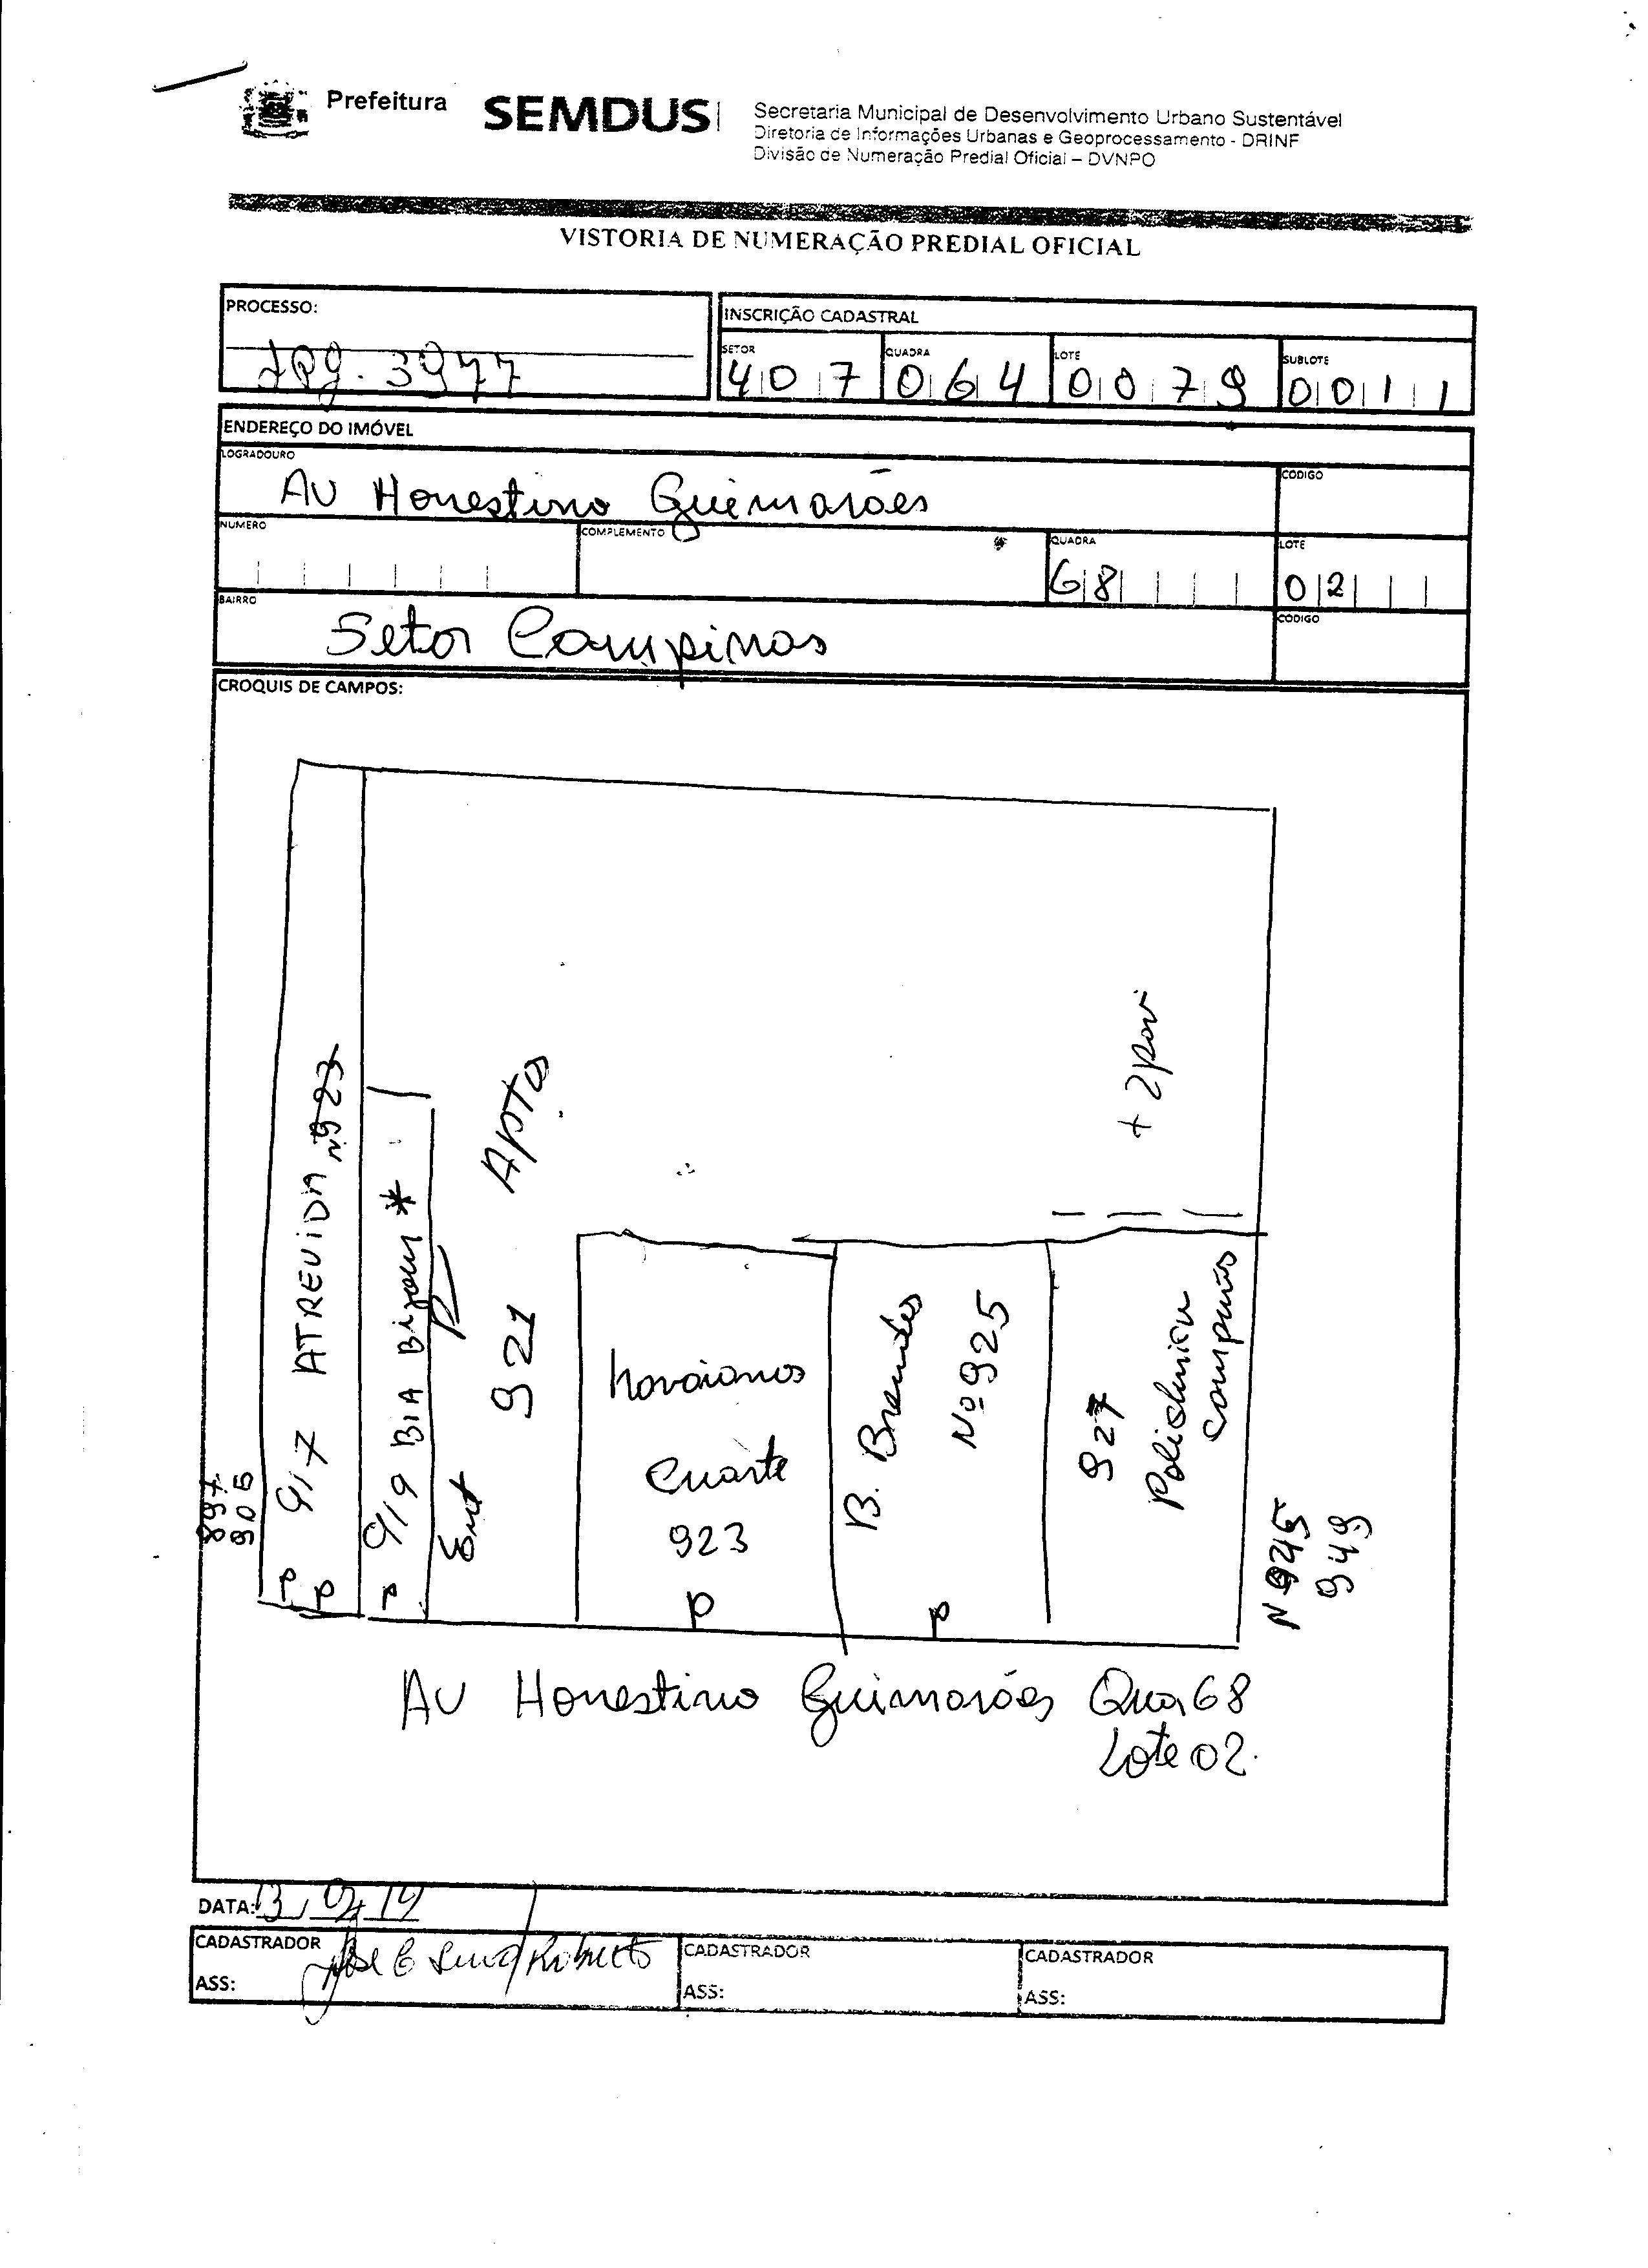 Prefeitura
SEMDUS
Secretaria Municipal de Desenvolvimento Urbano Sustentável
Diretoria de Informações Urbanas e Geoprocessamento - DRINF
Divisão de Numeração Predial Oficial – DVNPO
VISTORIA DE NUMERAÇÃO PREDIAL OFICIAL
PROCESSO:
3977
INSCRIÇÃO CADASTRAL
SETOR QUADRA LOTE SUBLOTE
407 064 0079 0011
ENDEREÇO DO IMÓVEL
LOGRADOURO
CÓDIGO
AV Honestino Guimarães
NUMERO COMPLEMENTO QUADRA LOTE
68 02
BAIRRO
CÓDIGO
Setor Campinas
CROQUIS DE CAMPOS:
897
905
917 ATREVIDA Nº 923
P P
919 BIA Bijou *
P
Ent
921 Aptos
havaianas
923
P
B. Brandes
Nº 925
P
+ 2 pav
927
Policlinica
campinas
N 945
949
AV Honestino Guimarães Qua 68
Lote 02.
DATA:
CADASTRADOR
ASS:
Roberto
CADASTRADOR
ASS:
CADASTRADOR
ASS: